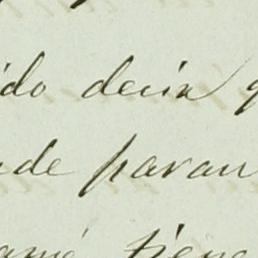 ido decia q
nde paran
amé tiene